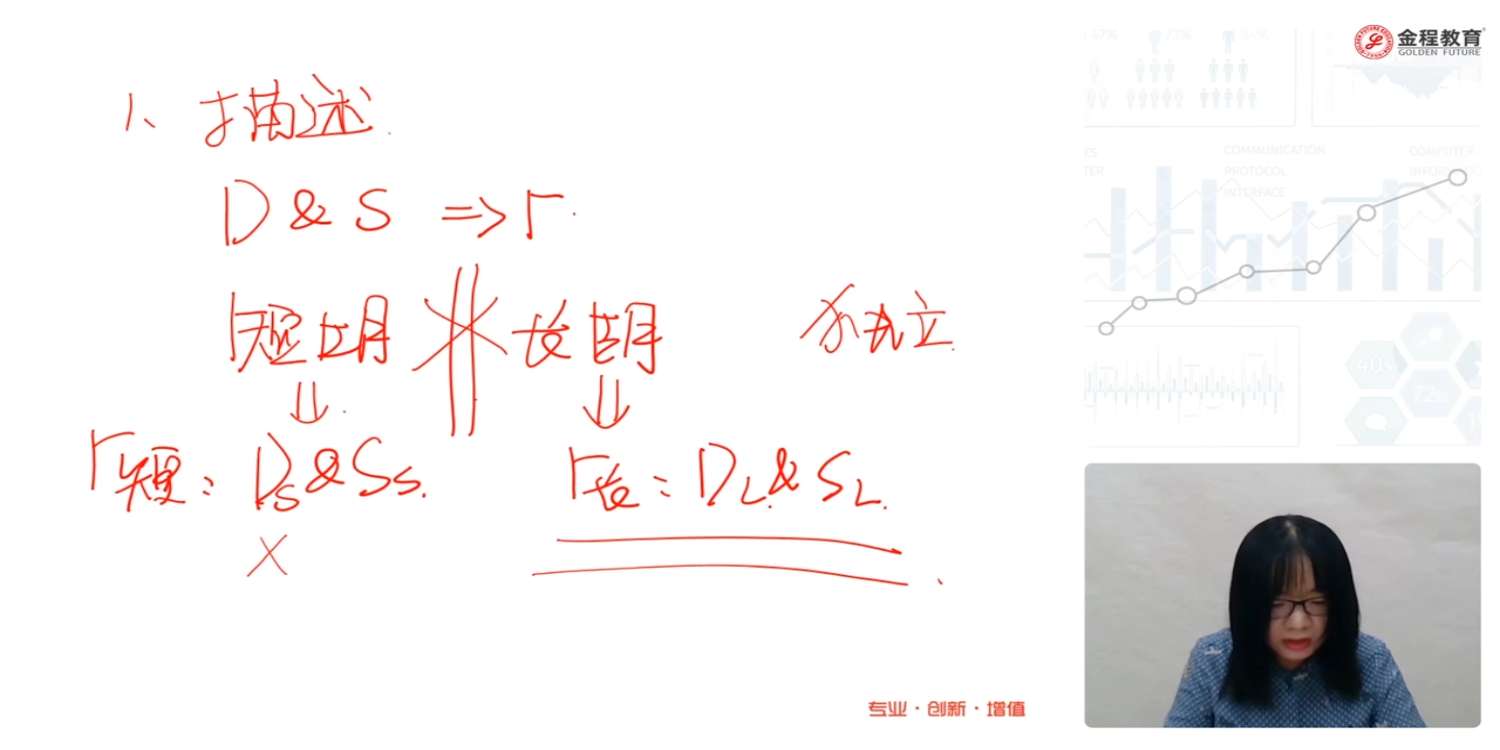 金程教育
GOLDEN FUTURE
1、描述
D & S => r
短期 长期 独立
r短: Ds & Ss. r长: DL & SL.
×
专业·创新·增值
COMMUNICATION
PROTOCOL
INTERFACE